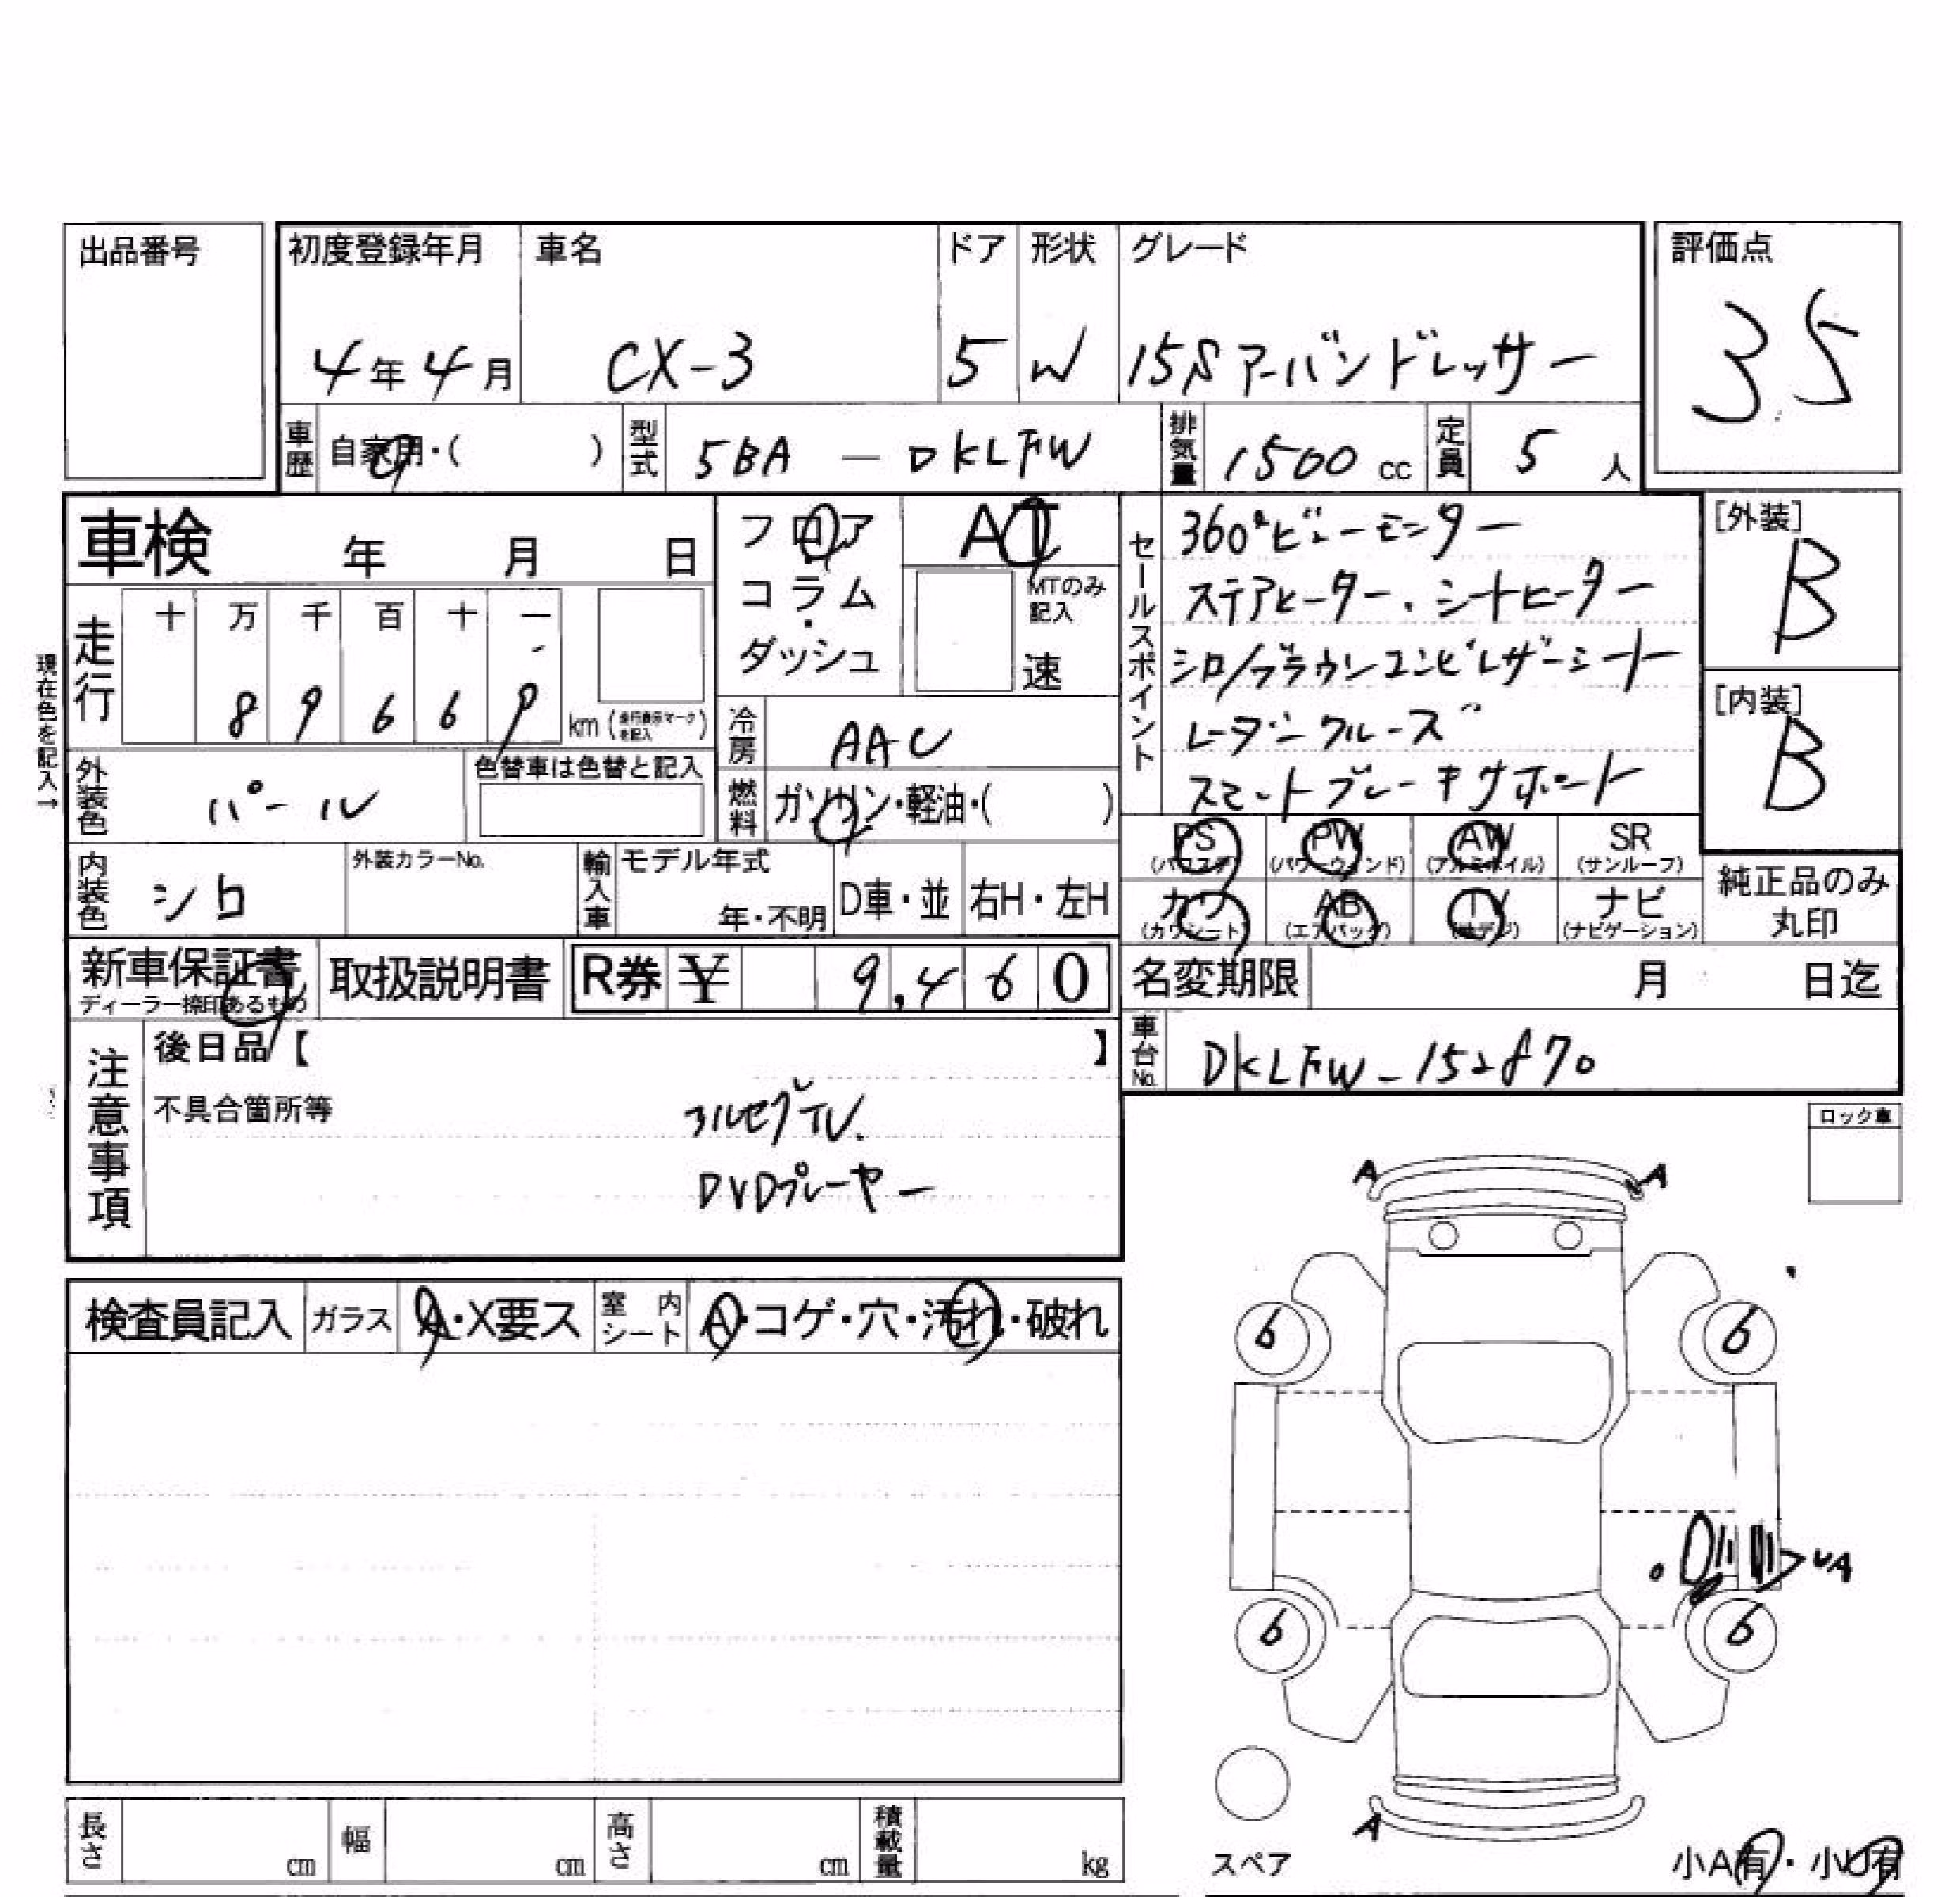 出品番号
初度登録年月 車名 ドア 形状 グレード 評価点
4年4月 CX-3 5 W 15S アーバンドレッサー 35
車歴 自家用・( ) 型式 5BA — DKLFW 排気量 1500cc 定員 5人
車検 年 月 日
フロア・コラム・ダッシュ
AT
MTのみ記入
速
現在色を記入→
走行 十 万 千 百 十 一
8 9 6 6 9 km (走行表示マークを記入)
冷房 AAC
燃料 ガソリン・軽油・( )
外装色 パール 色替車は色替と記入
内装色 シロ 外装カラーNo. 輸入車 モデル年式 年・不明 D車・並 右H・左H
セールスポイント
360°ビューモニター
ステアヒーター、シートヒーター
シロ/ブラウンコンビレザーシート
レーダークルーズ
スマートブレーキサポート
[外装] B
[内装] B
PS (パワステ) PW (パワーウィンド) AW (アルミホイル) SR (サンルーフ)
カワ (カワシート) AB (エアバッグ) TV (地デジ) ナビ (ナビゲーション)
純正品のみ丸印
新車保証書 ディーラー捺印あるもの 取扱説明書 R券 ¥ 9,460
名変期限 月 日迄
車台No. DKLFW-152870
注意事項
後日品【 】
不具合箇所等
フルセグTV.
DVDプレーヤー
ロック車
A A
検査員記入 ガラス A・X要ス 室内シート A・コゲ・穴・汚れ・破れ
6 6
UA
6 6
A
スペア
小A有・小U有
長さ cm 幅 cm 高さ cm 積載量 kg